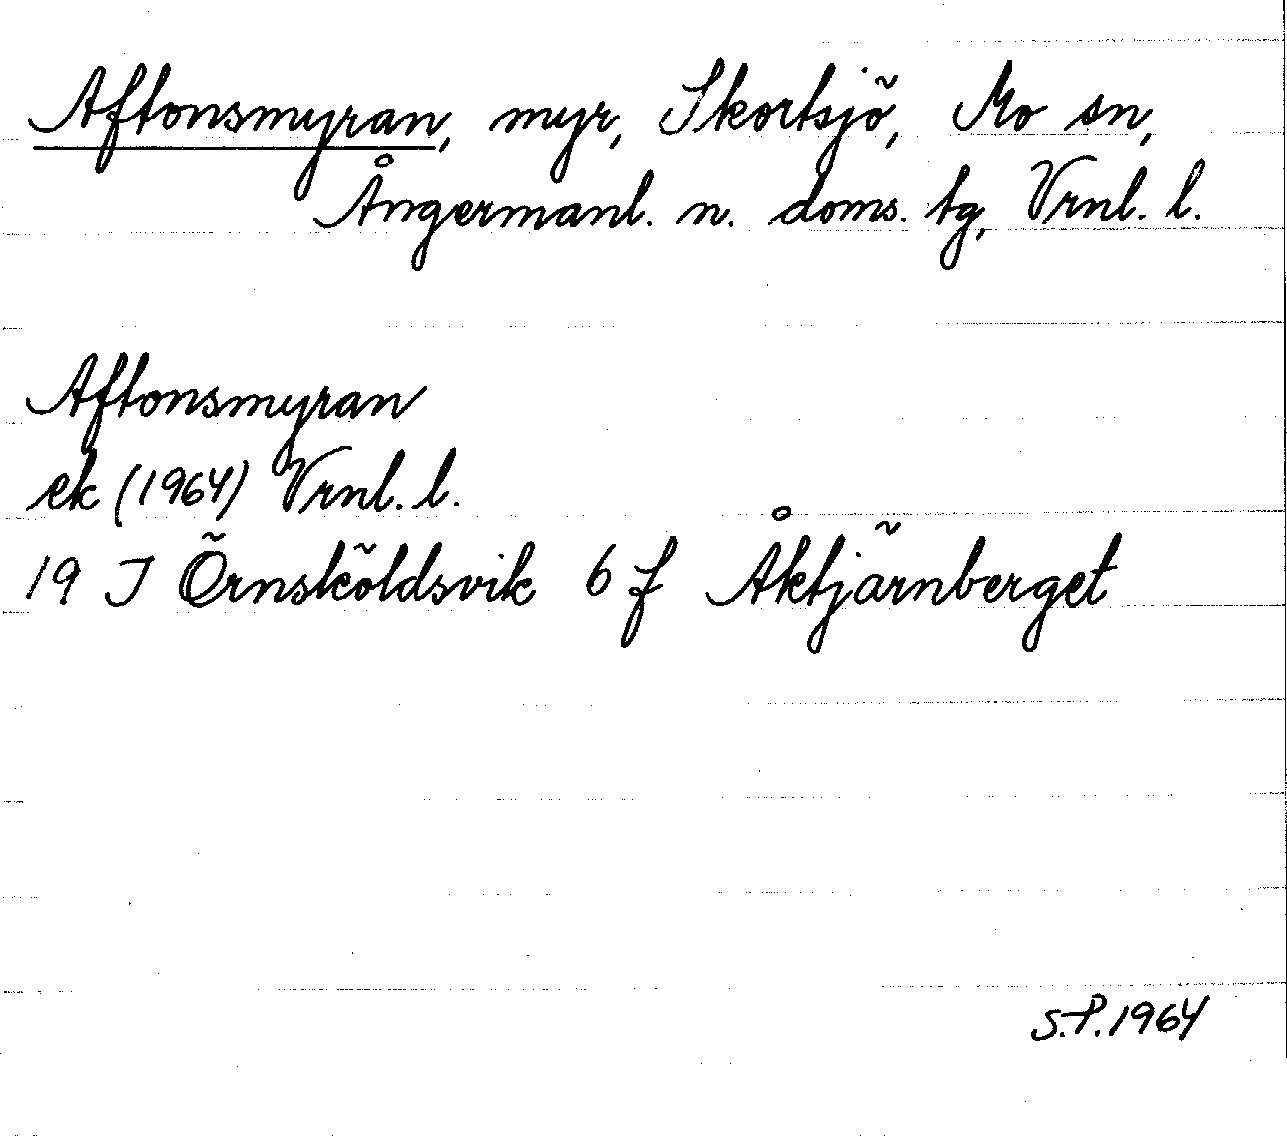 Aftonsmyran, myr, Skortsjö, Mo sn,
Ångermanl. n. doms. tg, Vrnl. l.
Aftonsmyran
ek (1964) Vrnl. l.
19 J Örnsköldsvik 6 f Åktjärnberget
S.P. 1964